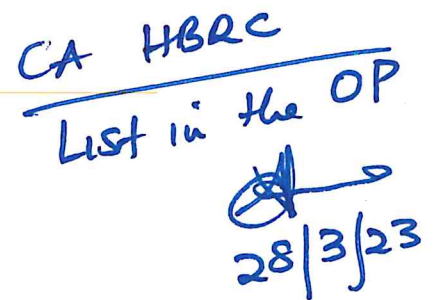 CA HBRC
List in the OP
28/3/23